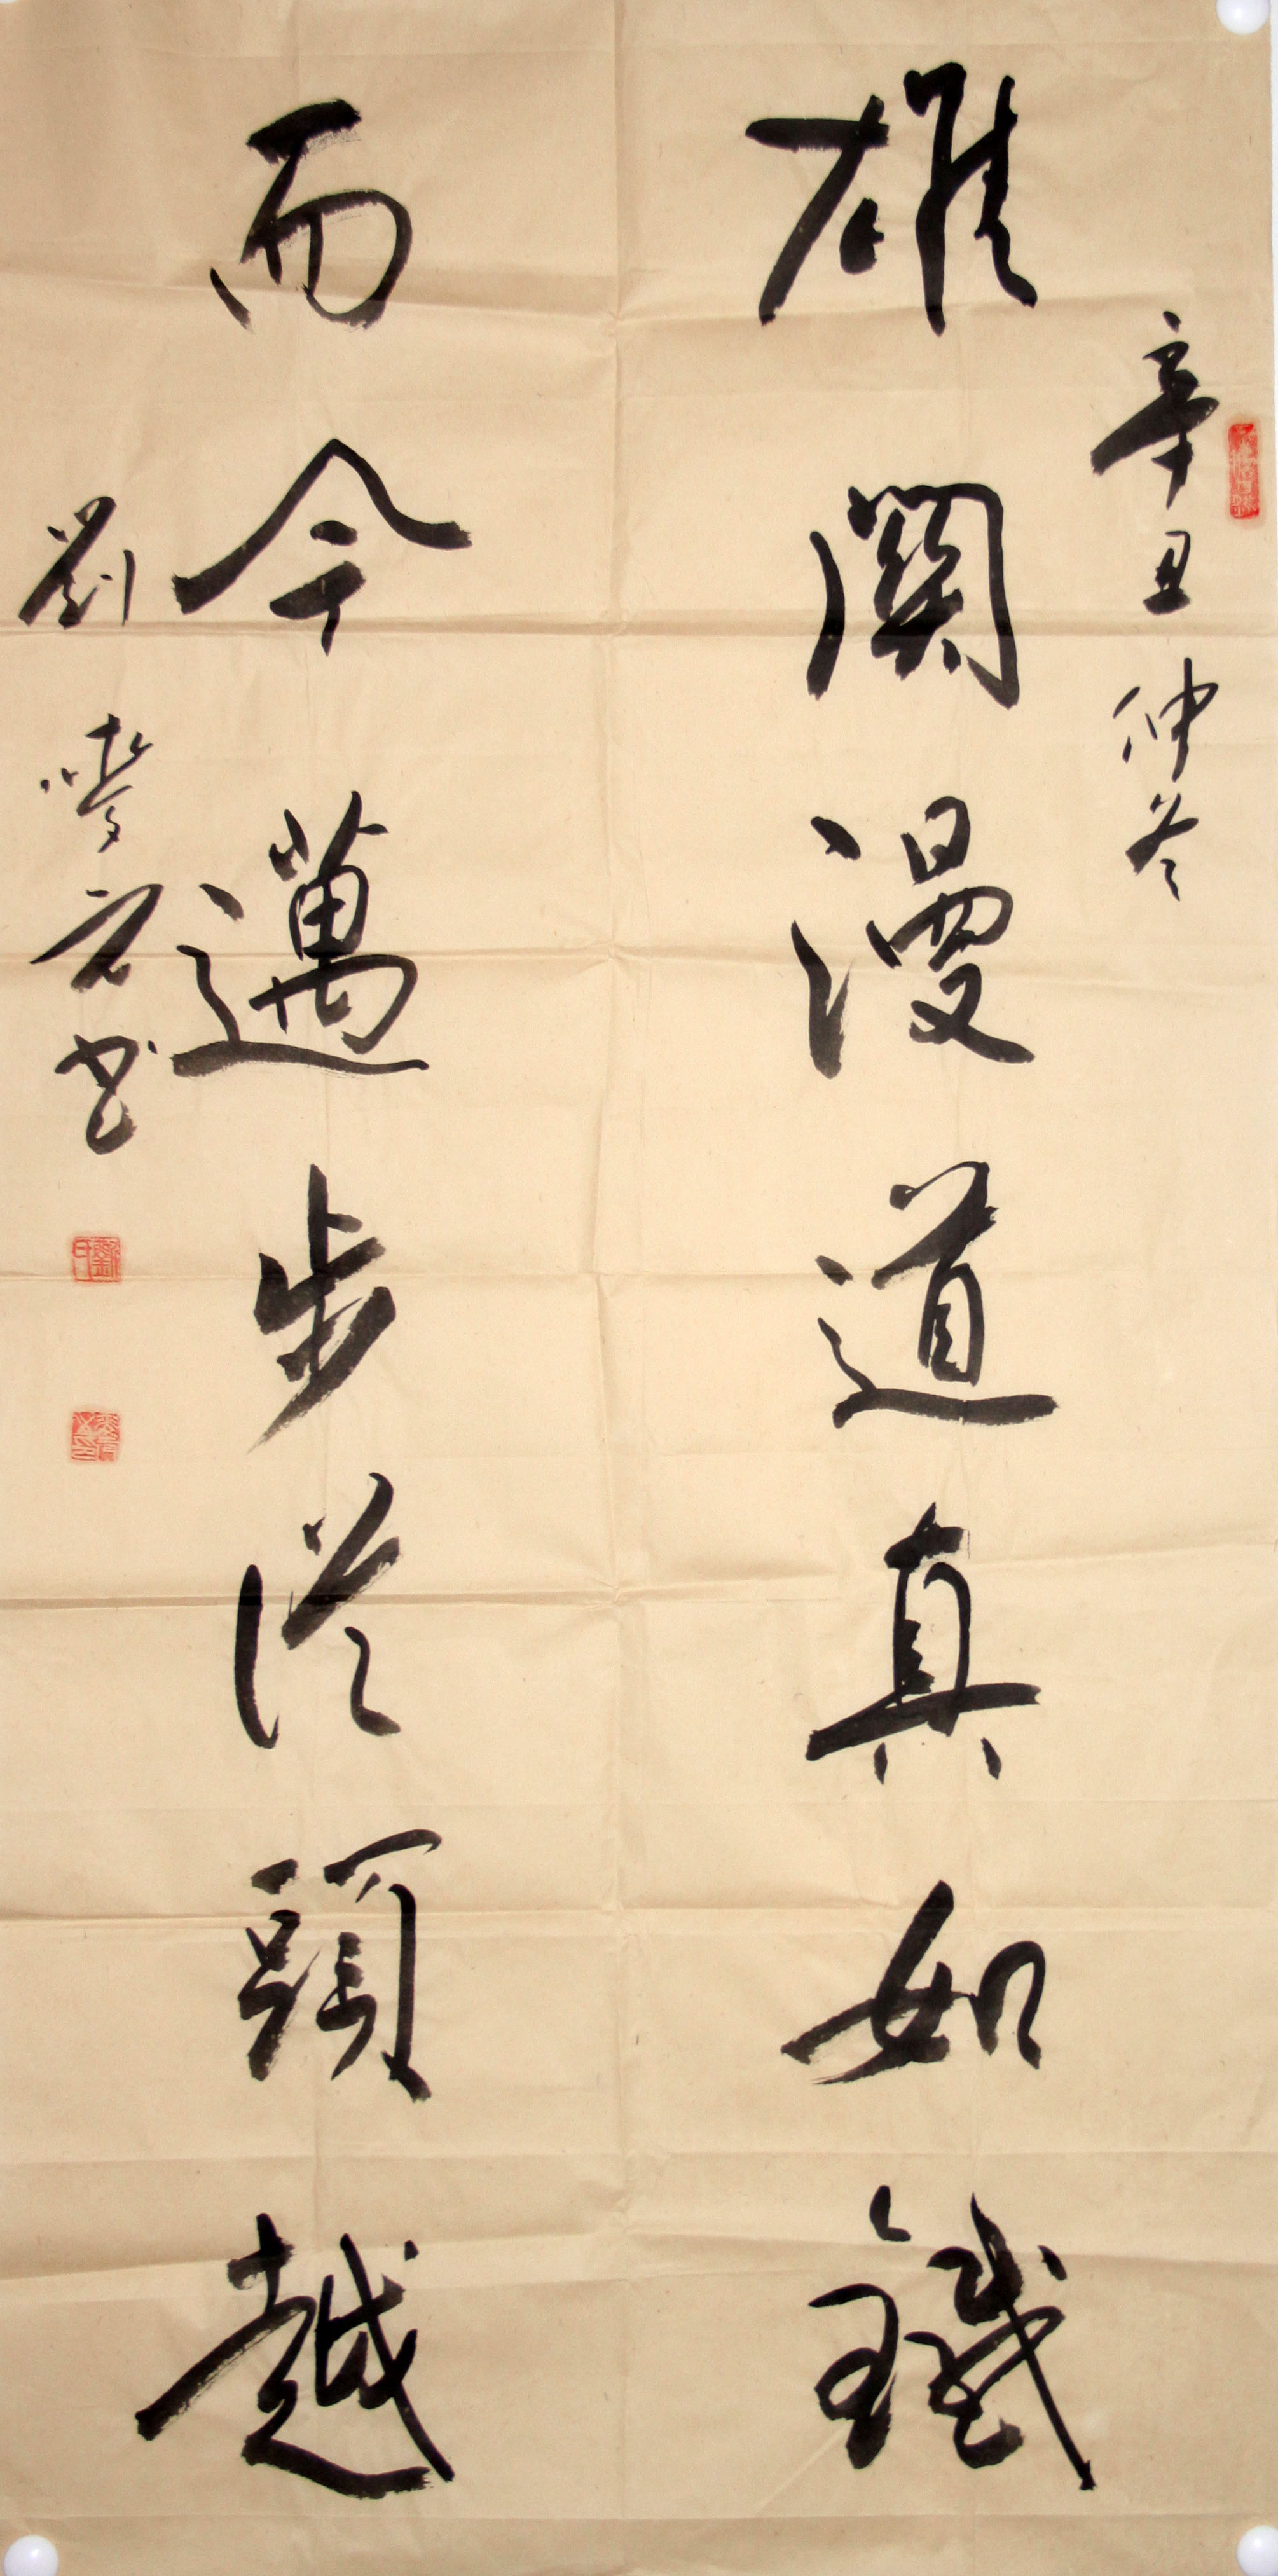 辛丑仲冬
雄關漫道真如鐵
而今邁步從頭越
劉
書